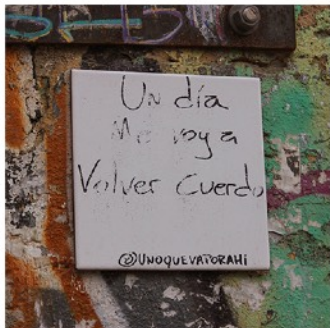 Un día
Me voy a
Volver Cuerdo
@UNOQUEVAPORAHI